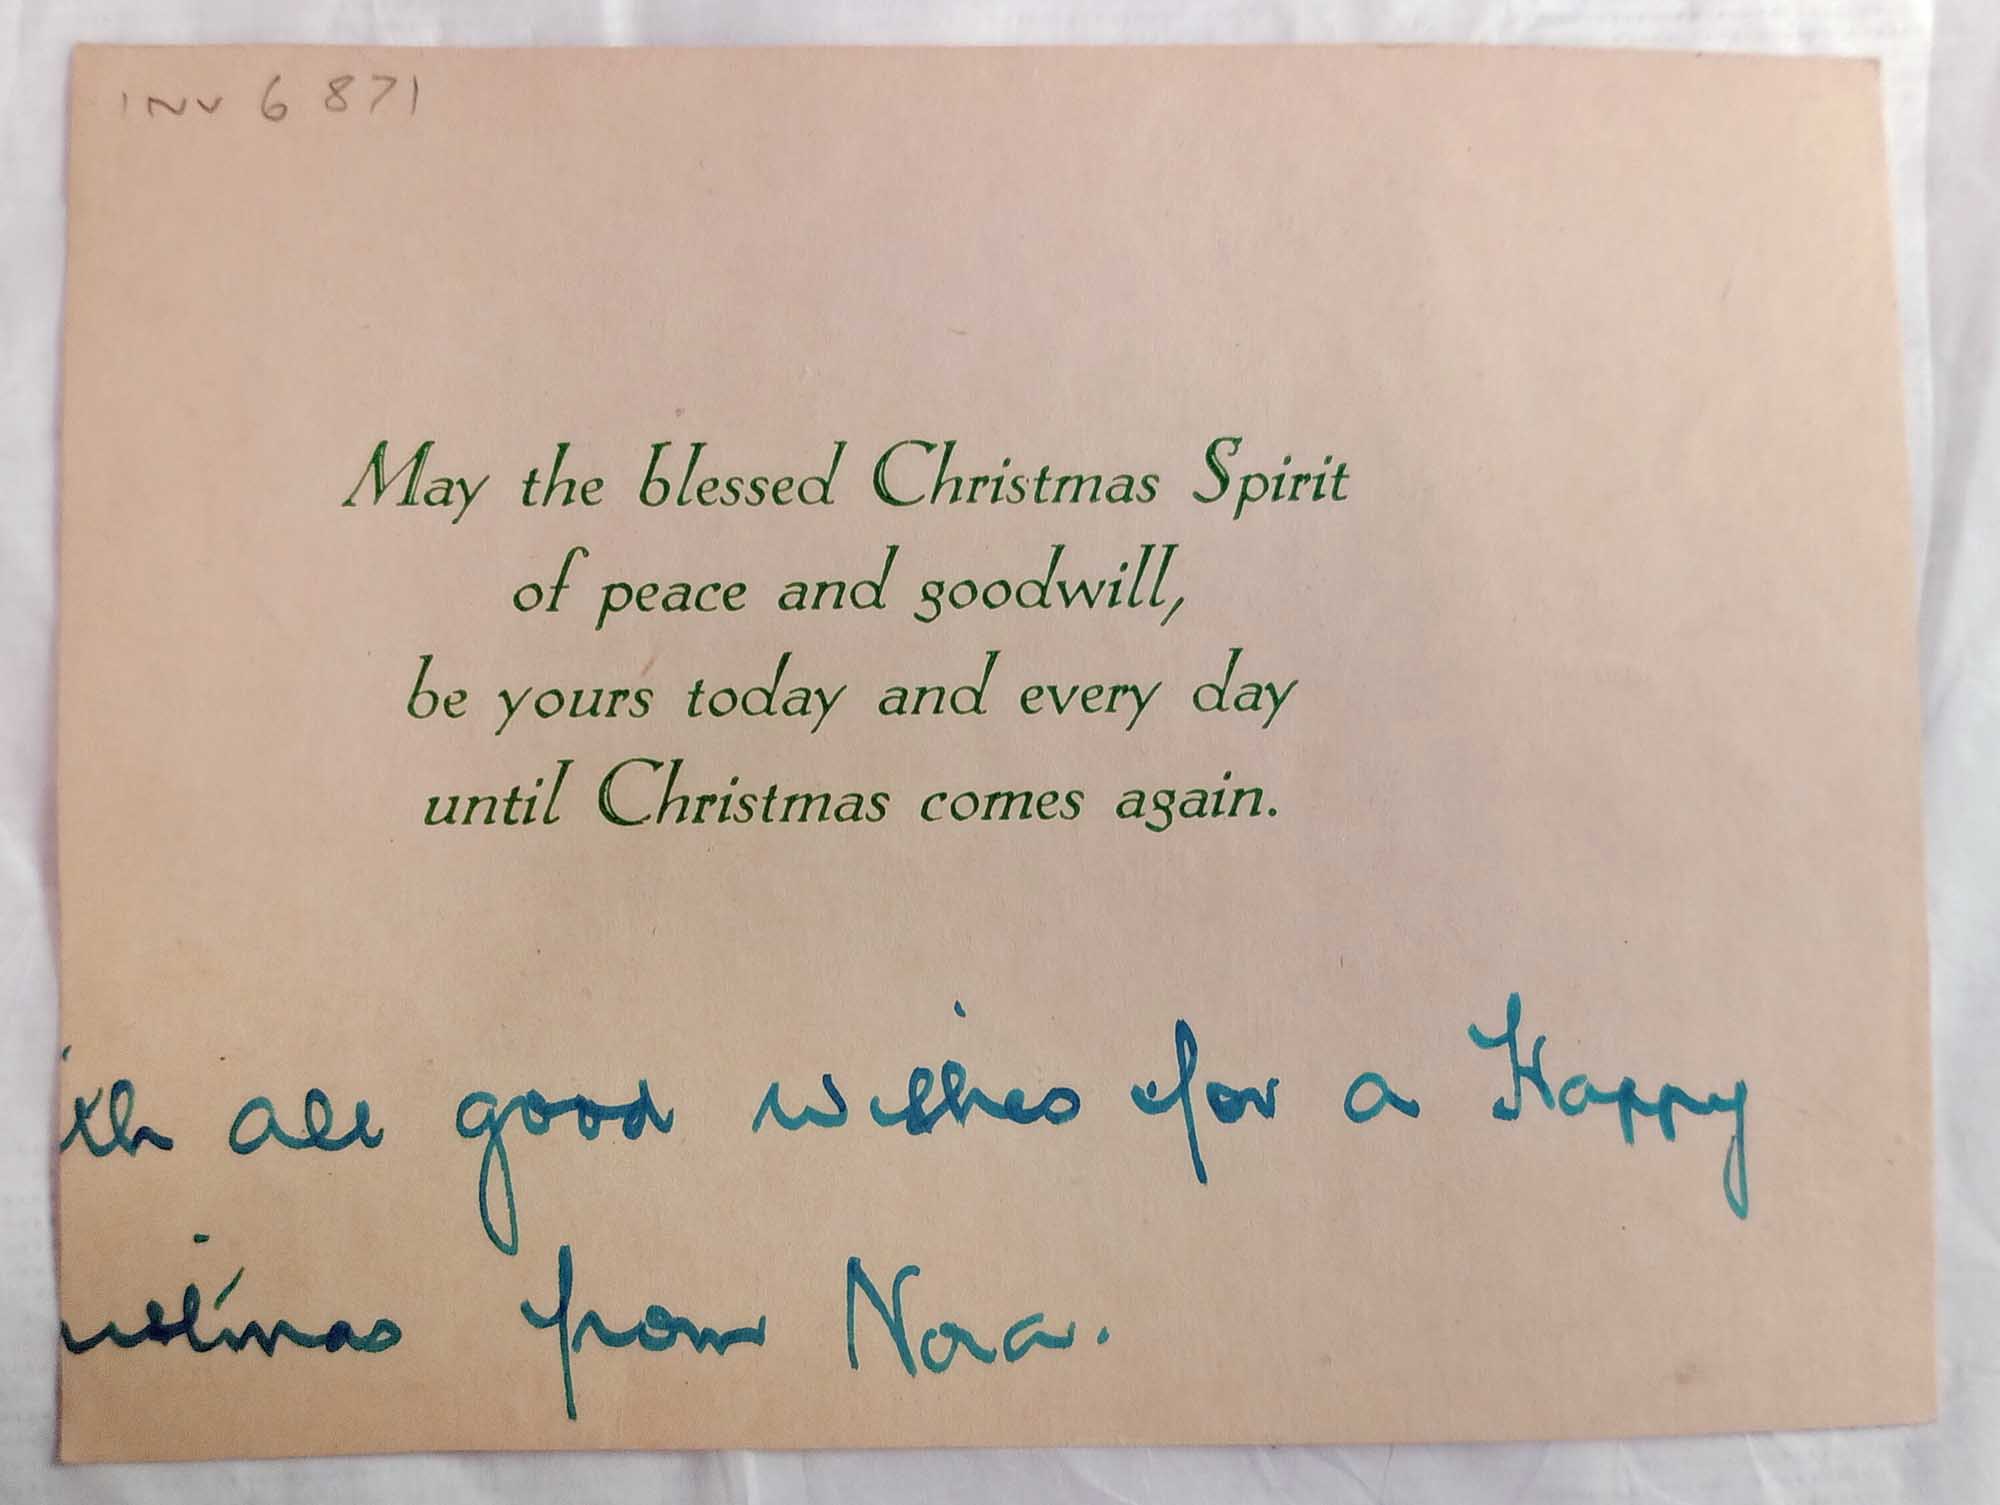 INV 6 871
May the blessed Christmas Spirit
of peace and goodwill,
be yours today and every day
until Christmas comes again.
ith all good wishes for a Happy
ristmas from Nora.